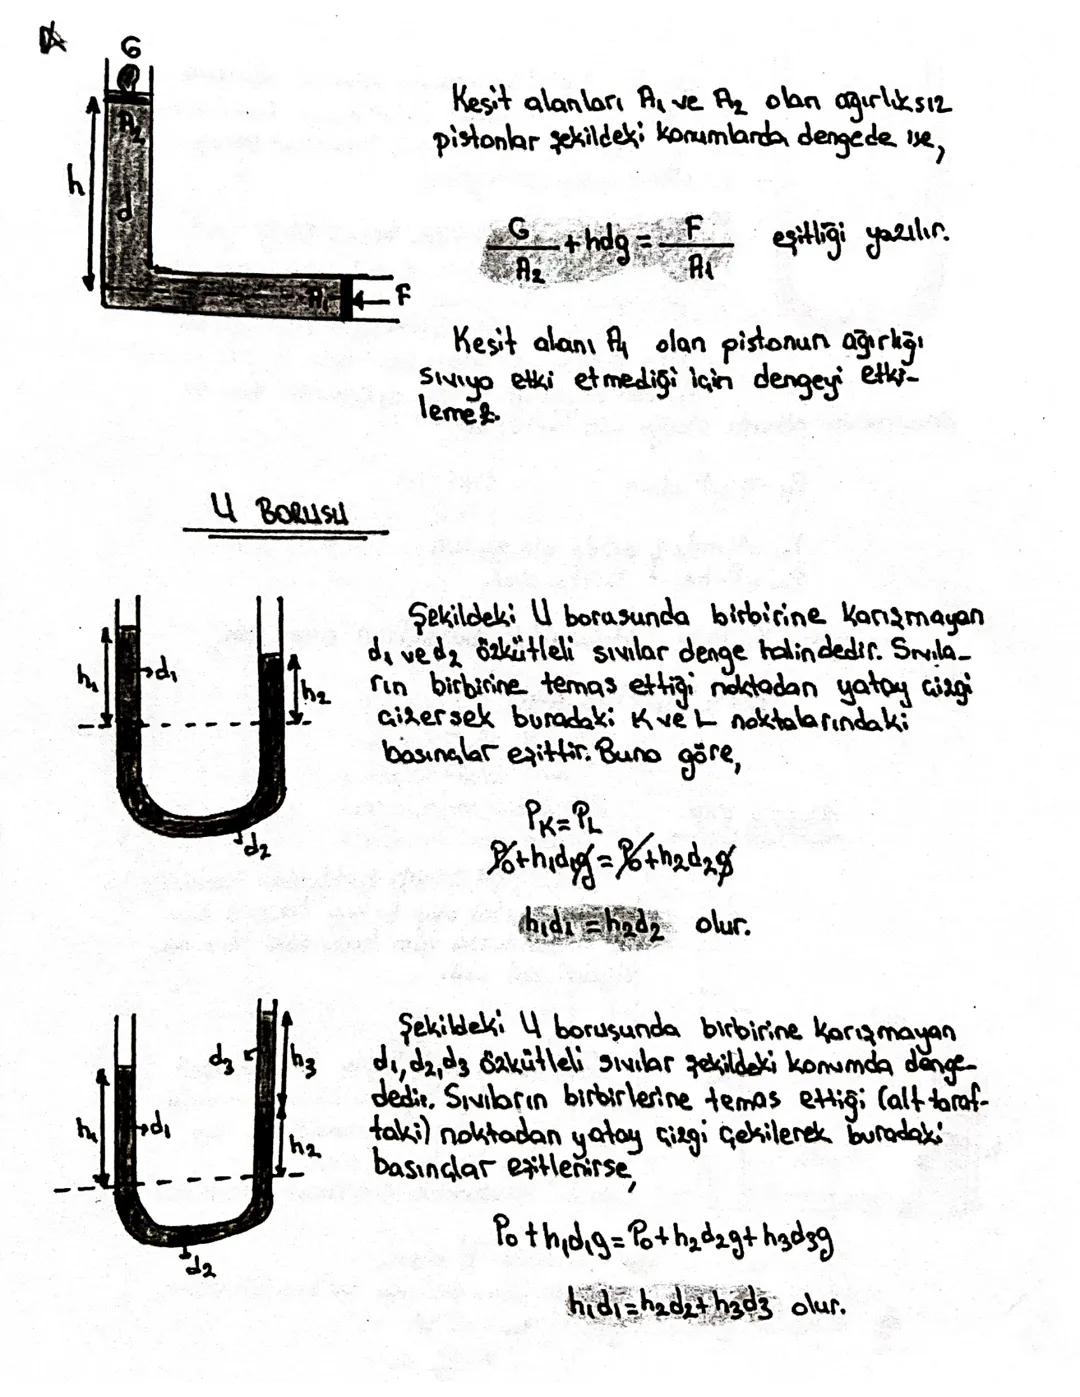 G
A₂
h
d
A₁
F
Kesit alanları A₁ ve A₂ olan ağırlıksız
pistonlar şekildeki konumlarda dengede ise,
G/A₂ + hdg = F/A₁ eşitliği yazılır.
Kesit alanı A₁ olan pistonun ağırlığı
sıvıya etki etmediği için dengeyi etki-
lemez.
U BORUSU
h₁
d₁
h₂
d₂
Şekildeki U borusunda birbirine karışmayan
d₁ ve d₂ özkütleli sıvılar denge halindedir. Sıvıla-
rın birbirine temas ettiği noktadan yatay çizgi
çizersek buradaki K ve L noktalarındaki
basınçlar eşittir. Buna göre,
PK = PL
P₀+h₁d₁g = P₀+h₂d₂g
h₁d₁ = h₂d₂ olur.
d₃
h₃
h₁
d₁
h₂
d₂
Şekildeki U borusunda birbirine karışmayan
d₁, d₂, d₃ özkütleli sıvılar şekildeki konumda denge-
dedir. Sıvıların birbirlerine temas ettiği (alt taraf-
taki) noktadan yatay çizgi çekilerek buradaki
basınçlar eşitlenirse,
P₀+h₁d₁g = P₀+h₂d₂g+h₃d₃g
h₁d₁ = h₂d₂+h₃d₃ olur.